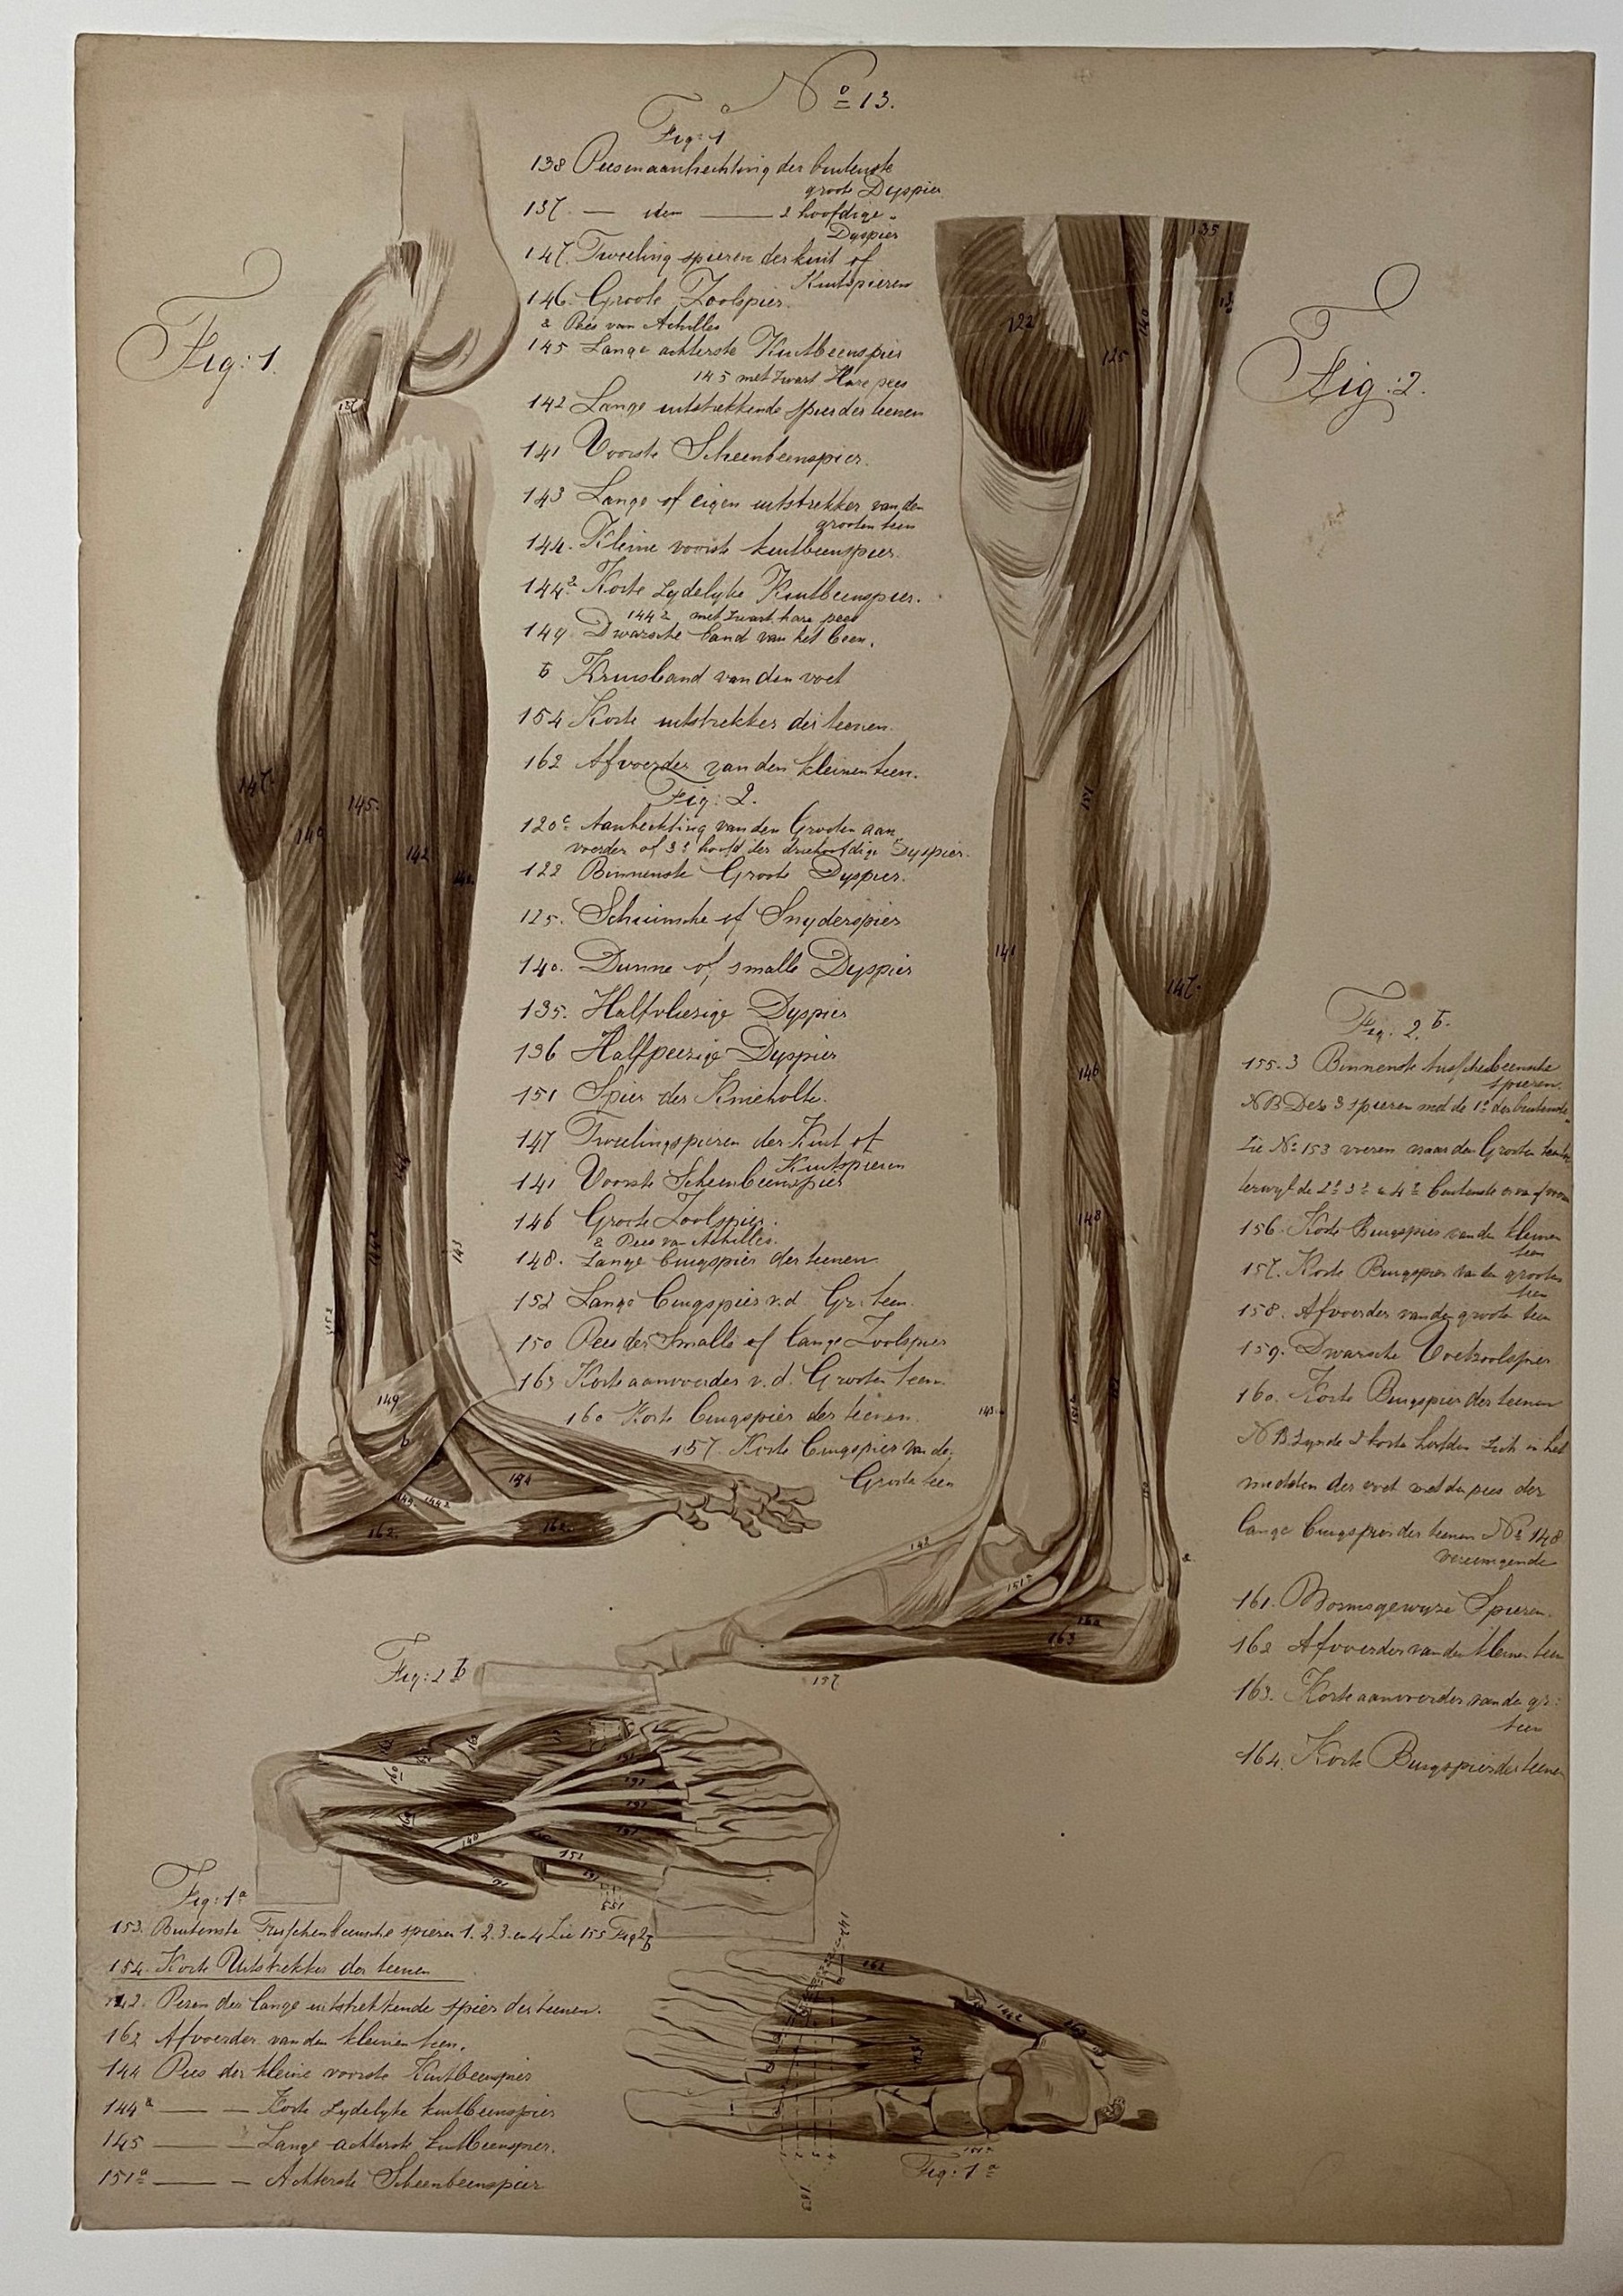 No 13.
Fig: 1
138 Peesenaanhechting der buitenste
groote Dyspier
137. — idem — 2 hoofdige
Dyspier
147. Tweeling spieren der kuit of
Kuitspieren
146. Groote Zoolspier.
a Pees van Achilles
145 Lange achterste Kuitbeenspier
145 met zwart Hare pees
142 Lange uitstrekkende spier der teenen
141 Voorste Scheenbeenspier.
143 Lange of eigen uitstrekker van den
grooten teen
144. Kleine voorste kuitbeenspier.
144a. Korte zydelyke Kuitbeenspier.
144a met zwart hare pees
149. Dwarsche band van het been.
b Kruisband van den voet
154 Korte uitstrekker der teenen.
162 Afvoerder van den kleinen teen.
Fig: 2.
120c Aanhechting van den Grooten aan
voerder of 3e hoofd der driehoofdige Dyspier.
122 Binnenste Groote Dyspier.
125. Schuinsche of Snyderspier
140. Dunne of smalle Dyspier
135. Halfvliezige Dyspier
136 Halfpeezige Dyspier
151 Spier der Knieholte.
147 Tweelingspieren der Kuit of
Kuitspieren
141 Voorste Scheenbeenspier
146 Groote Zoolspier.
a Pees van Achilles.
148. Lange buigspier der teenen
152 Lange buigspier v.d. Gr: teen.
150 Pees der Smalle of lange Zoolspier
163 Korte aanvoerder v.d. Grooten teen.
160 Korte buigspier der teenen.
157. Korte buigspier van de
Groote teen
Fig: 1.
Fig: 2.
137
147.
146
145.
142
141
144
144a
143
145a
149
b
154
145
144a
162.
162.
122
125
140
135
136
151
141
147.
146
148
143
151a
152
150
141
151a
a
162
163
157
Fig: 2 b.
155. 3 Binnenste tusschenbeensche
spieren.
NB Deze 3 spieren met de 1e der buitenste
Zie No 153 voeren naar den Grooten teen
terwyl de 2e 3e & 4e buitenste er van afvoeren
156. Korte Buigspier van den kleinen
teen
157. Korte Buigspier van den grooten
teen
158. Afvoerder van de groote teen
159. Dwarsche Voetzoolspier
160. Korte Buigspier der teenen
NB Zynde 2 korte hoofden zich in het
midden der voet met de pees der
lange buigspier der teenen No 148
vereenigende
161. Wormsgewyze Spieren.
162 Afvoerder van den kleinen teen
163. Korte aanvoerder van de gr:
teen
164. Korte Buigspier der teenen
Fig: 2 b
Fig: 1a
153. Buitenste Tusschenbeensche spieren 1. 2. 3. en 4 Zie 155 Fig 2b
154. Korte Uitstrekker der teenen
142. Pezen der lange uitstrekkende spier der teenen.
162 Afvoerder van den kleinen teen.
144 Pees der kleine voorste Kuitbeenspier
144a — — Korte zydelyke kuitbeenspier
145 — — Lange achterste kuitbeenspier.
151a — — Achterste Scheenbeenspier
162
144a
153
Fig: 1a